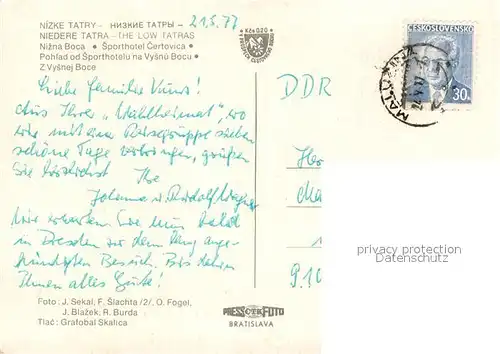 NÍZKE TATRY - НИЗКИЕ ТАТРЫ - 21.5.77
NIEDERE TATRA - THE LOW TATRAS
Nižná Boca • Športhotel Čertovica •
Pohľad od Športhotelu na Vyšnú Bocu •
Z Vyšnej Boce
Kčs 0,20
ČESKOSLOVENSKO
30h
DDR
Liebe Familie
Aus Ihrer „Wahlheimat", wo
wir mit einer Reisegruppe sieben
schöne Tage verbringen, grüßen
Sie herzlichst Ihre
Johanna u. Rudolf Wagner
Wir erwarten Sie nun bald
in Dresden zu dem lang ange-
kündigten Besuch. Bis dahin
Ihnen alles Gute!
privacy protection
Foto: J. Sekal, F. Šlachta /2/, O. Fogel,
J. Blažek, R. Burda
Tlač: Grafobal Skalica
PRESSFOTO
BRATISLAVA